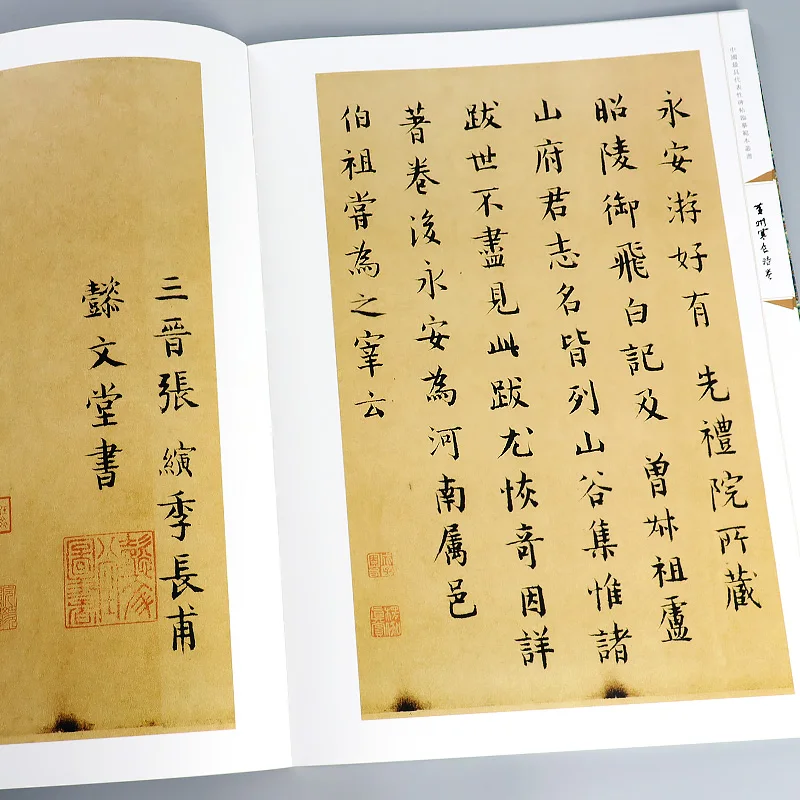 中國最具代表性碑帖臨摹範本叢書
黃州寒食詩卷
永安游好有先禮院所藏
昭陵御飛白記及曾叔祖盧
山府君志名皆列山谷集惟諸
跋世不盡見此跋尤恢奇因詳
著卷後永安為河南屬邑
伯祖嘗為之宰云
三晉張縯季長甫
懿文堂書